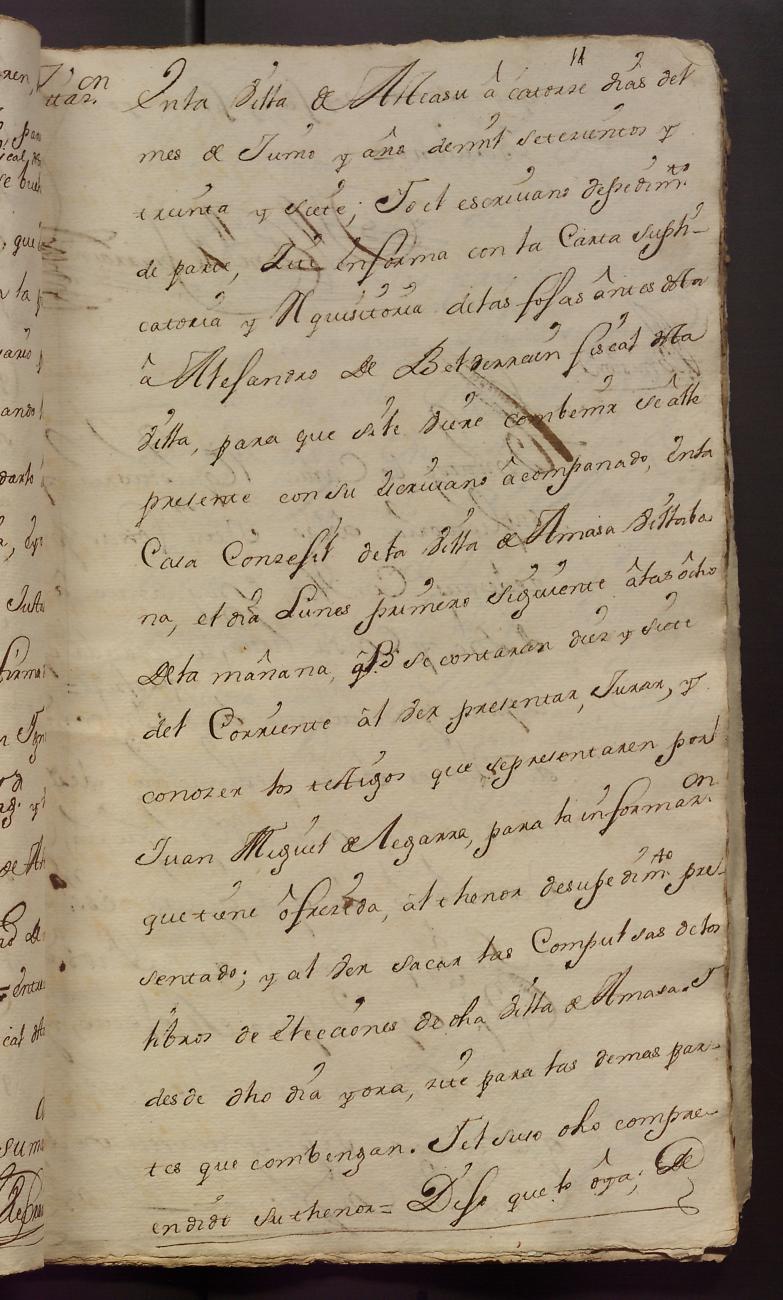 11
Enla Villa de Alcasu â catorse dias del
mes de Junio y año demil setecientos y
treinta y siete; Yo el escriuano depedimto
de parte, Zite eninforma con la Carta supli-
catoria y Rquisitoria delas fojas ântes desta
â Alejandro de Belderrain fiscal desta
Villa, para que sile diere combenir se âlle
presente consu escriuano âcompanado, Enla
Casa Conzejil dela Villa de Amasa Villaba
na, el dia Lunes primero siguiente âlas ôcho
Dela mañana, q se contaran diez y siete
del Corriente âl Ver presentar, Jurar, y
conozer los testigos que sepresentaren porl
Juan Miguel de Legarra, para la informaon
quetiene ôfrezida, âlthenor desupedimto pre-
sentado; y al Ver sacar las Compulsas delos
libros de Elecciones de dha Villa de Amasa. Y
desde dho dia yora, zite para las demas par-
tes que combengan. Yel suso dho compre-
endido suthenor = Dijo quelo ôya; De